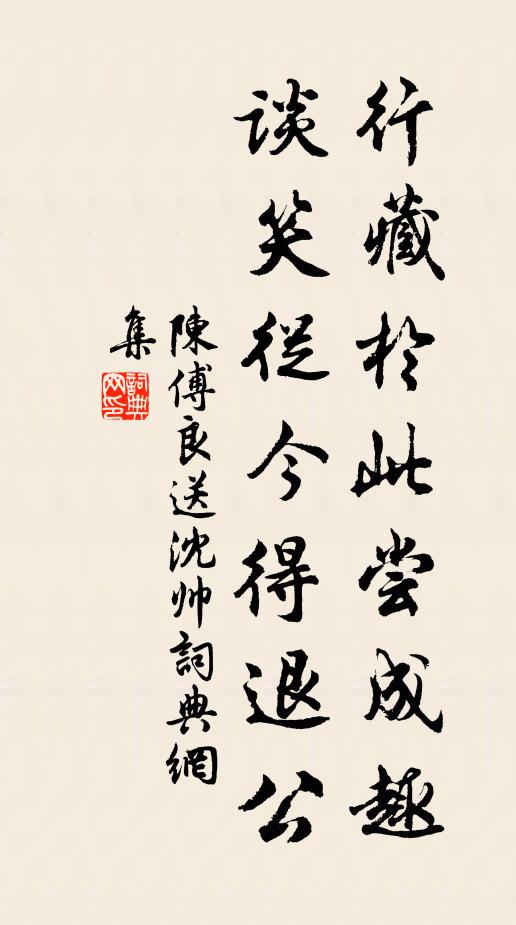 行藏於此尝成趣
谈笑從今得退公
陳傅良送沈帅詞典網
集
詞典
网印